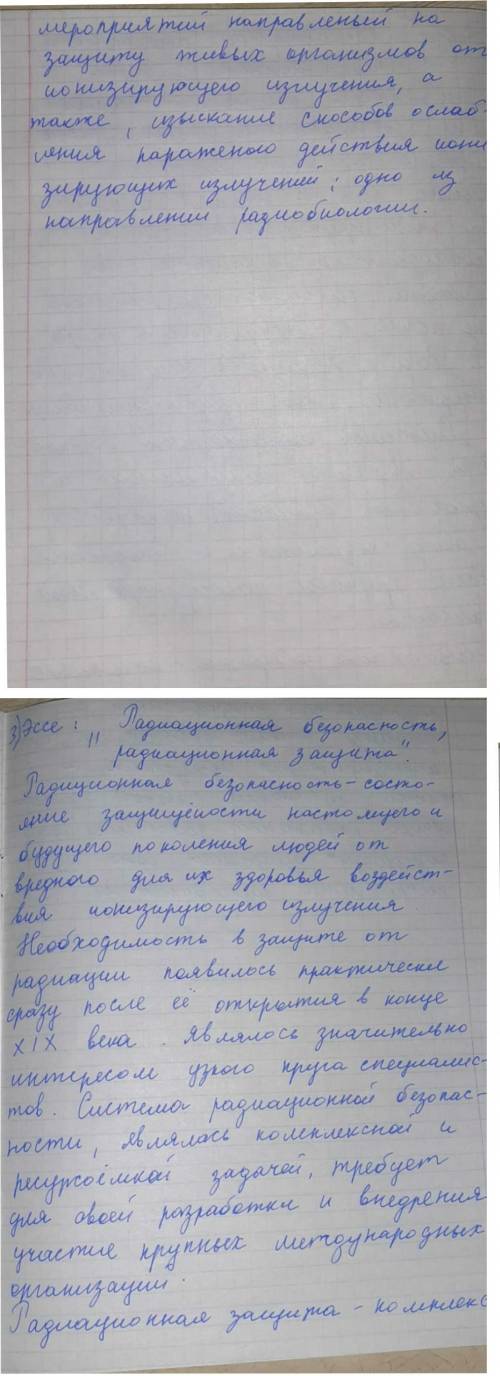 мероприятий направленый на
защиту живых организмов от
ионизирующего излучения, а
также, изыскание способов ослаб-
ления параженого действия иони
зирующих излучений; одно из
направлений радиобиологии.
3) Эссе: „Радиационная безопасность,
радиационная защита".
Радиционная безопасность - состо-
яние защищёности настоящего и
будущего поколения людей от
вредного для их здоровья воздейст-
вия ионизирующего излучения
Необходимость в защите от
радиации появилось практически
сразу после её открытия в конце
XIX века. Являлось значительно
интересом узкого круга специалис-
тов. Система радиационной безопас-
ности, являлась комплексной и
ресурсоёмкой задачей, требует
для своей разработки и внедрения
участие крупных международных
организаций.
Радиационная защита - комплекс